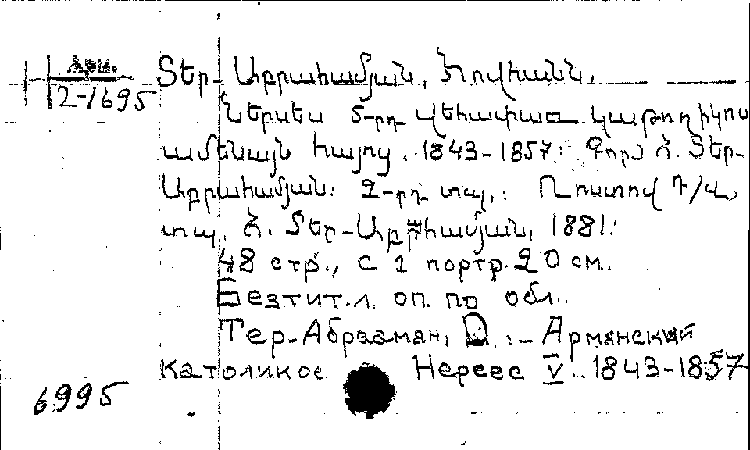 Арм.
2-1695
Տեր-Աբրահամյան, Հովհանն.
Ներսես 5-րդ վեհափառ կաթողիկոս
ամենայն հայոց. 1843-1857: Գործ Հ. Տեր-
Աբրահամյան: 2-րդ տպ.: Ռոստով Դ/վ,
տպ. Հ. Տեր-Աբրհամյան, 1881:
48 стр., с 1 портр. 20 см.
Без тит. л. оп. по обл.
Тер-Абрааман, О. :- Армянский
католикос Нерсес V. 1843-1857
6995